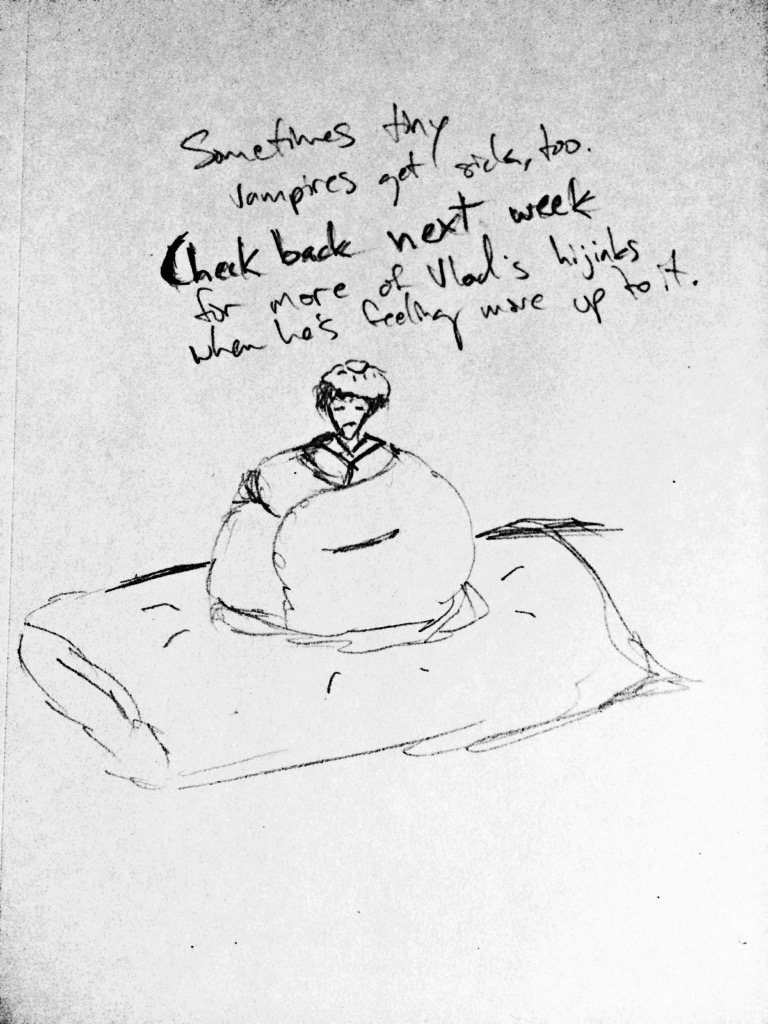 Sometimes tiny
vampires get sick, too.
Check back next week
for more of Vlad's hijinks
when he's feeling more up to it.